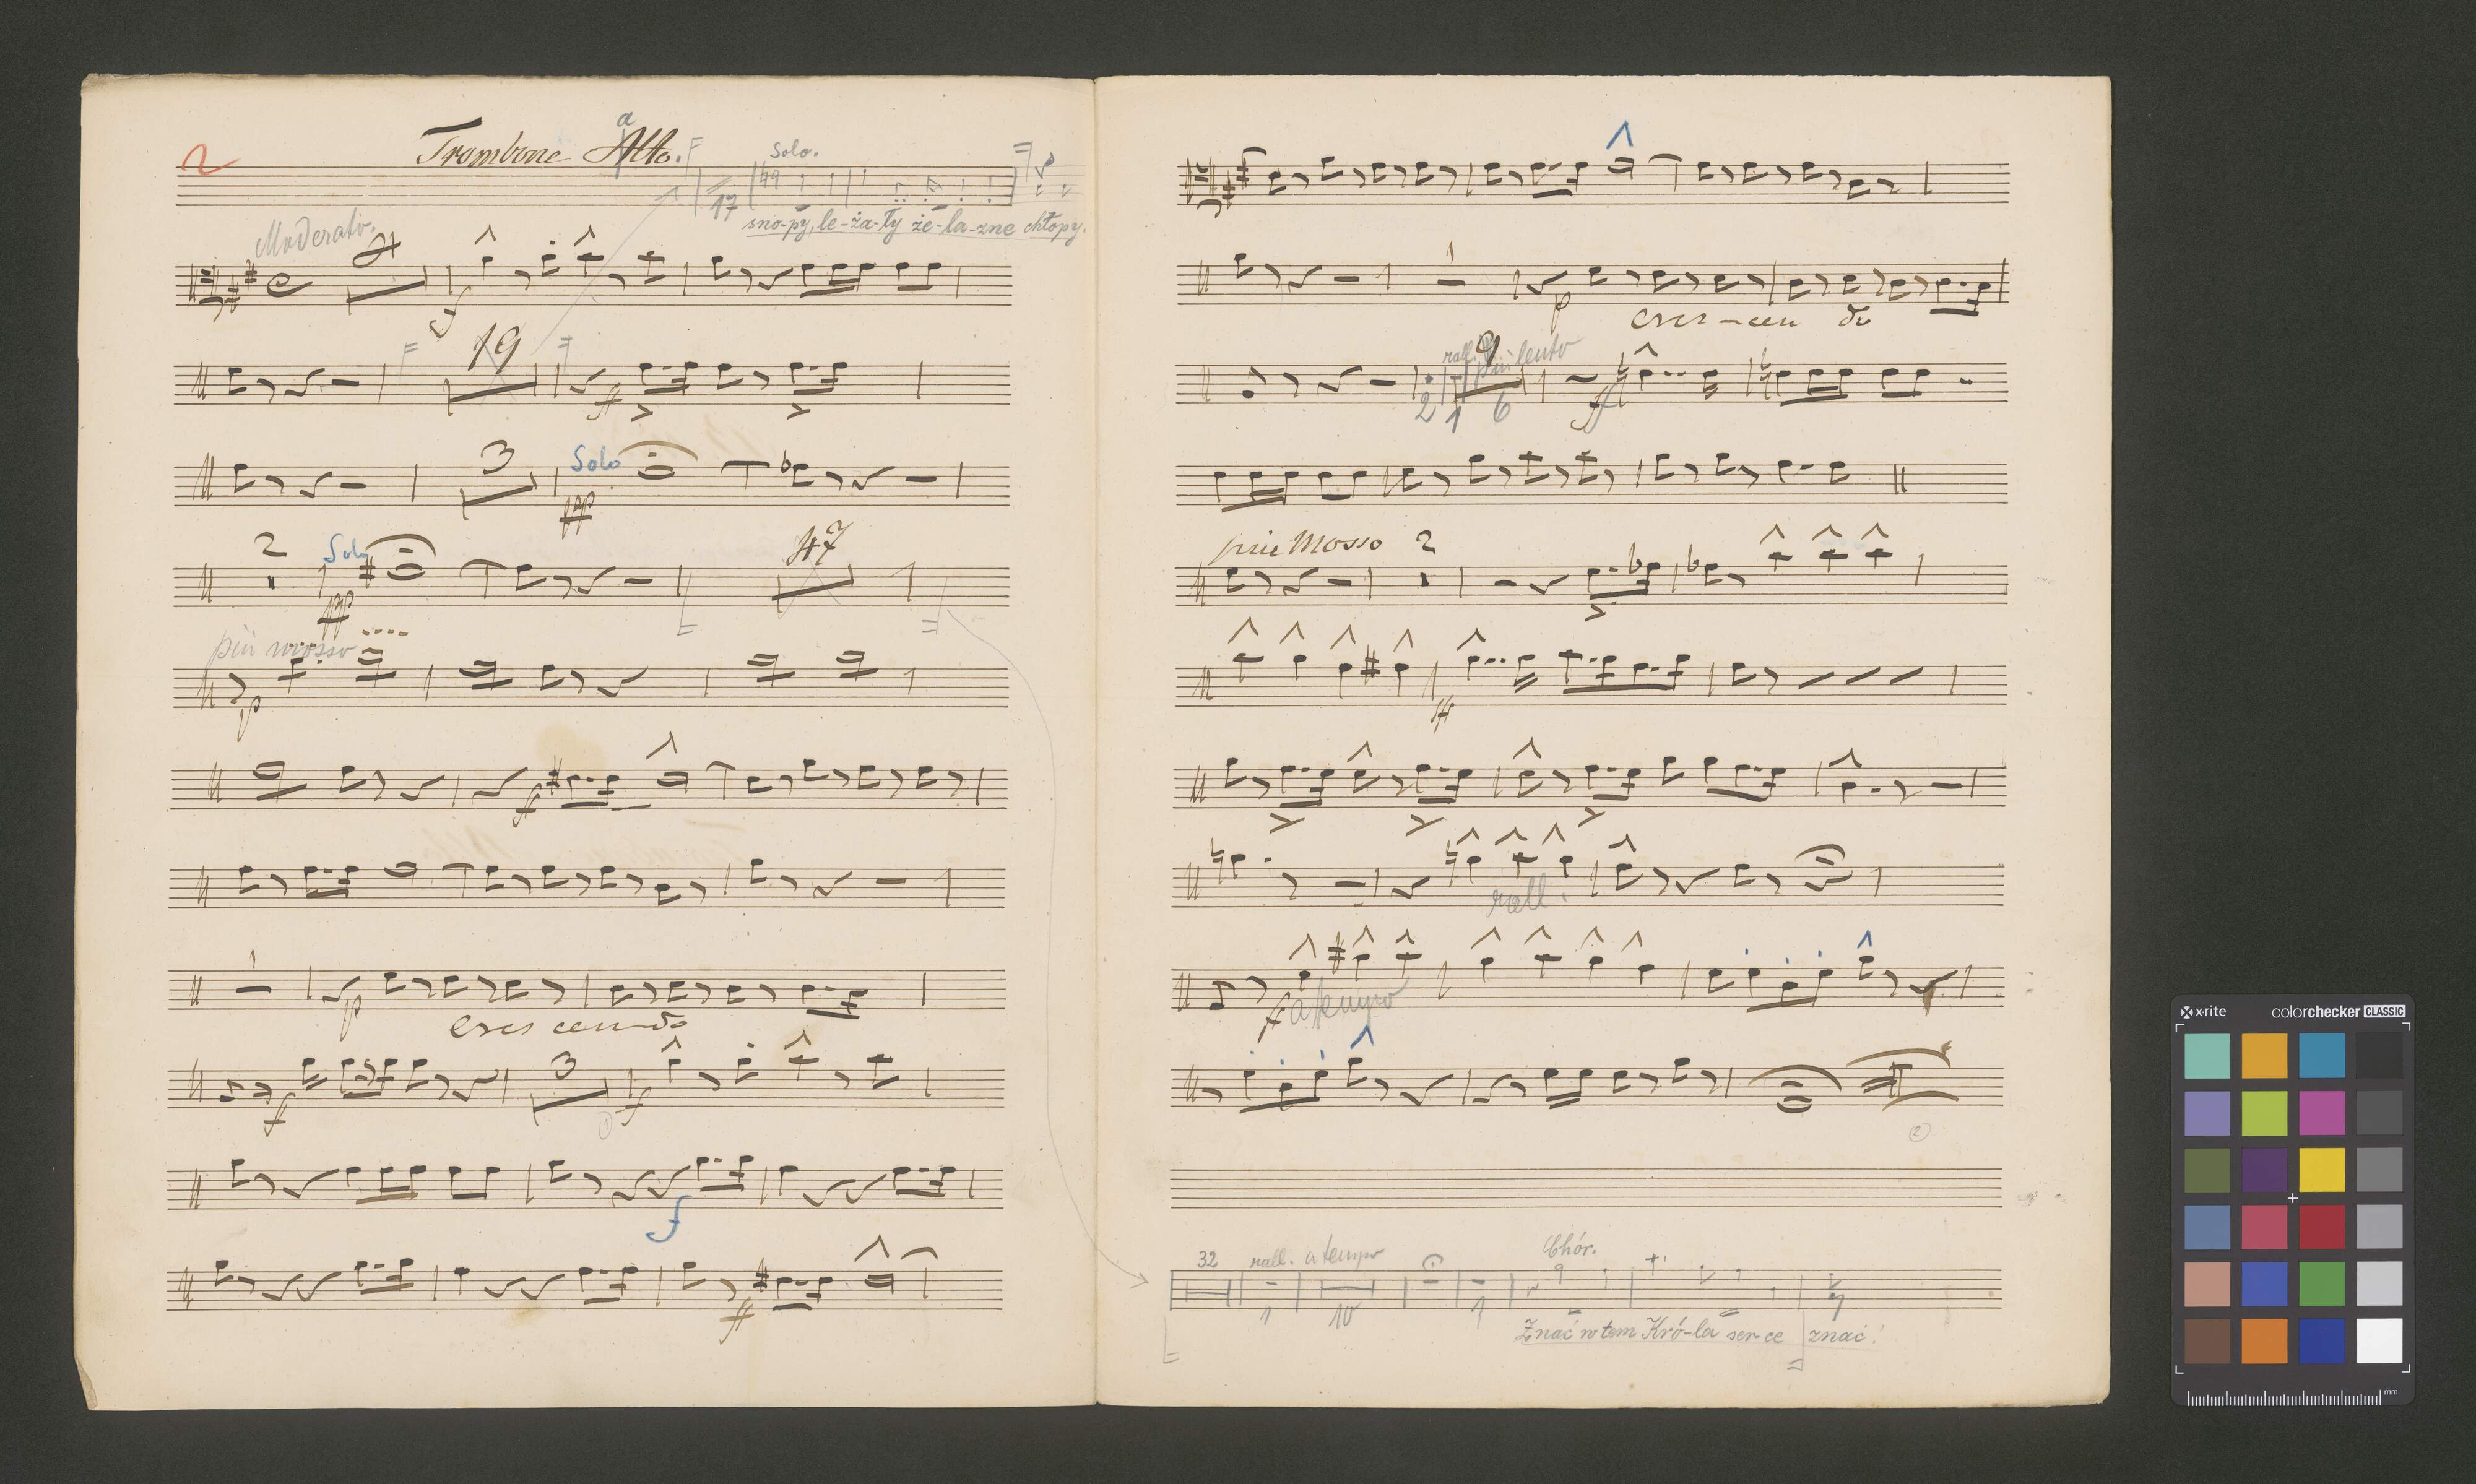 2
Trombone Alto.
a
Solo.
17
sno-py, le-ża-ły że-la-zne chłopy.
Moderato.
f
19
ff
3
Solo
pp
2
Solo
pp
47
più mosso
p
ff
1
p
cres cen do
f
3
1
f
f
ff
1
p
cres-cen do
rall.
9
più lento
2 1 6
ff
più Mosso 2
ff
rall.
f a tempo
2
32 rall. a tempo Chór.
1 10 1
Znać w tem Kró-la ser-ce znać!
x-rite colorchecker CLASSIC
mm